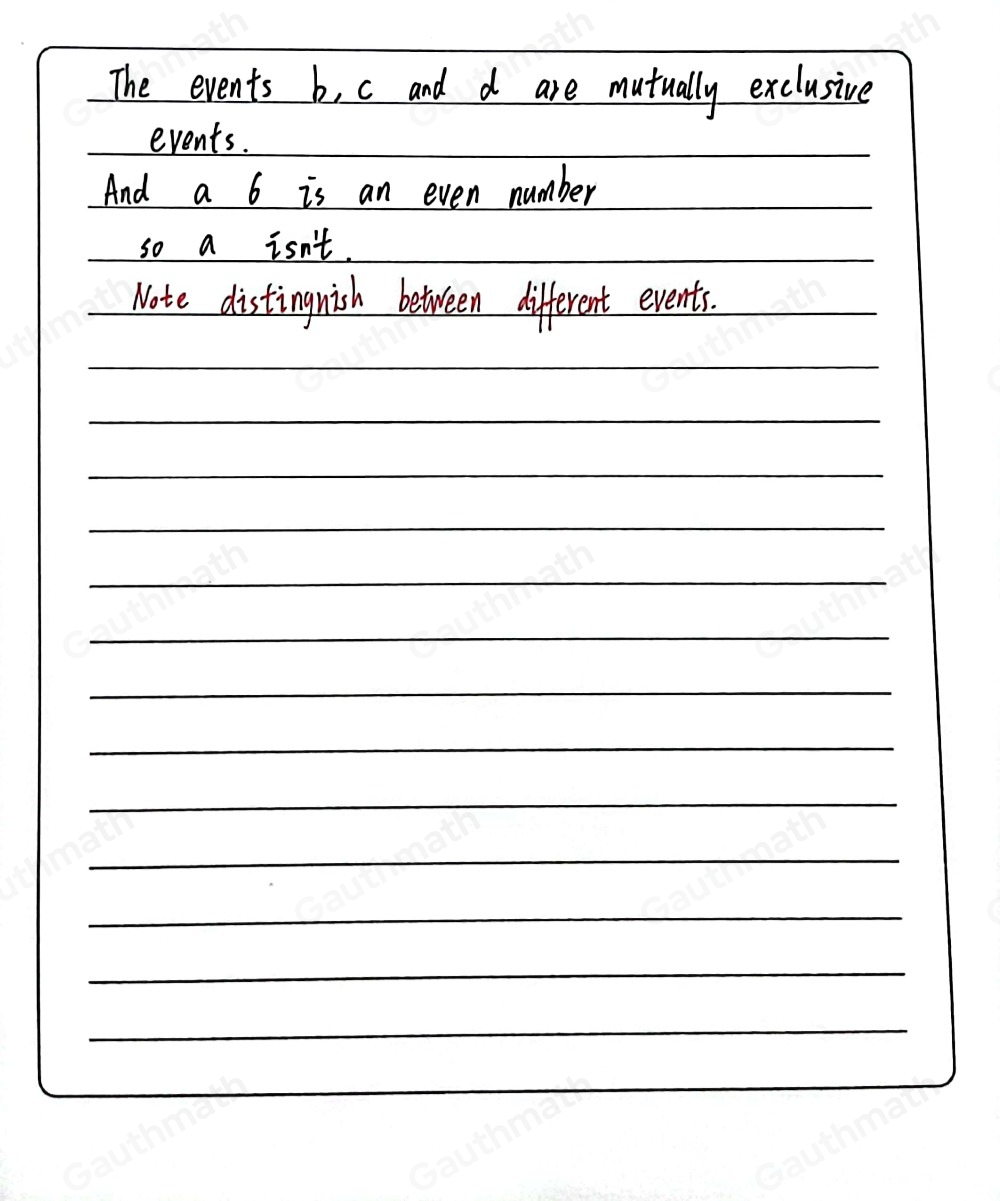 The events b, c and d are mutually exclusive
events.
And a 6 is an even number
so a isn't.
Note distingnish between different events.
Gauthmath